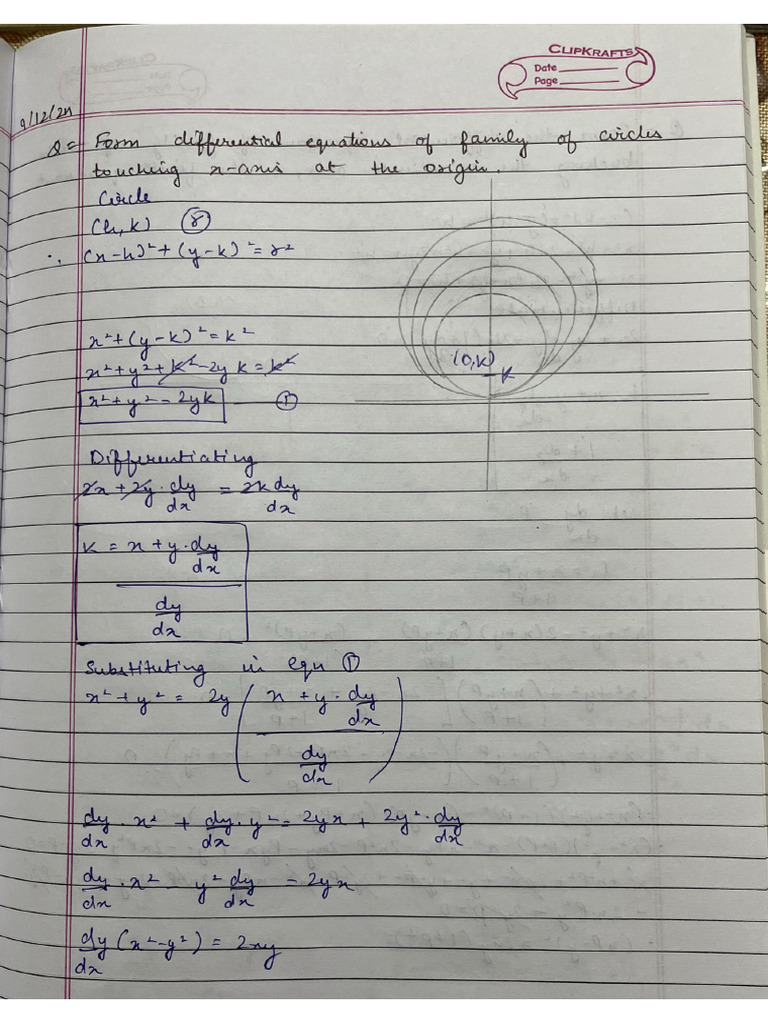 CLIPKRAFTS
Date
Page
9/12/24
Q= Form differential equations of family of circles
touching x-axis at the origin.
Circle
(h, k) (r)
∴ (x-h)² + (y-k)² = r²
x² + (y-k)² = k²
x² + y² + k² - 2yk = k²
x² + y² = 2yk — ①
(0,k)
k
Differentiating
2x + 2y · dy/dx = 2k dy/dx
k = x + y · dy/dx / dy/dx
Substituting in eqn ①
x² + y² = 2y ( x + y · dy/dx / dy/dx )
dy/dx · x² + dy/dx · y² = 2yx + 2y² · dy/dx
dy/dx · x² - y² dy/dx = 2yx
dy/dx (x² - y²) = 2xy